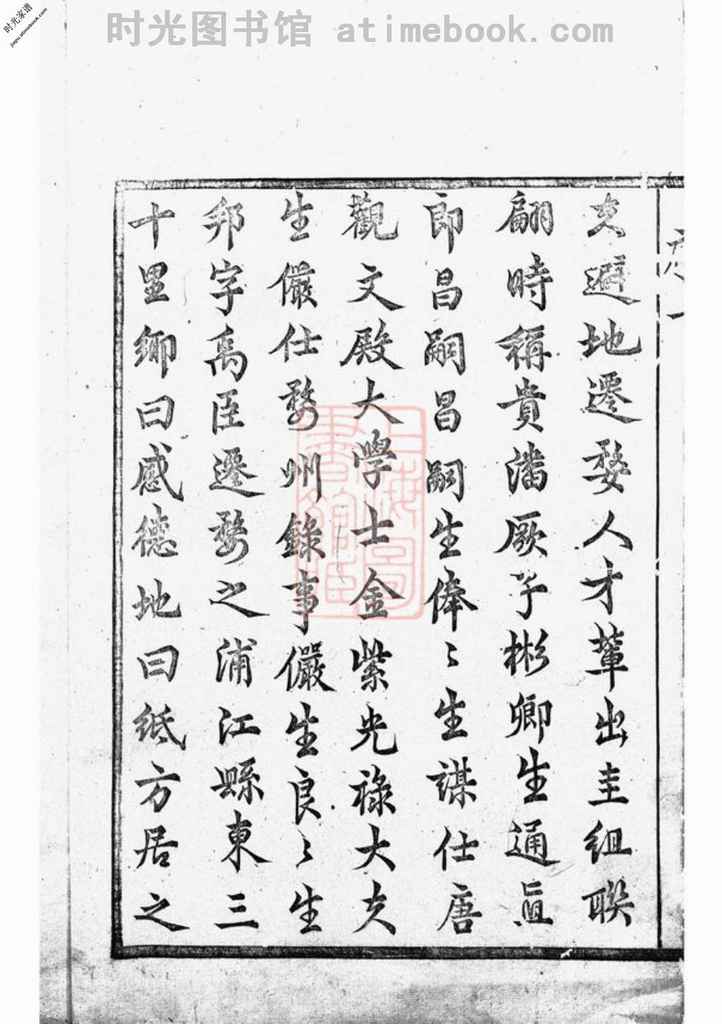 时光图书馆 atimebook.com
时光家谱
jiapu.atimebook.com
避地遷婺人才輩出圭組聯
翩時稱貴潘厥子彬卿生通直
郎昌嗣昌嗣生俸〻生謀仕唐
觀文殿大學士金紫光祿大夫
生儼仕婺州錄事儼生良〻生
邦字禹臣遷婺之浦江縣東三
十里鄉曰感德地曰紙方居之